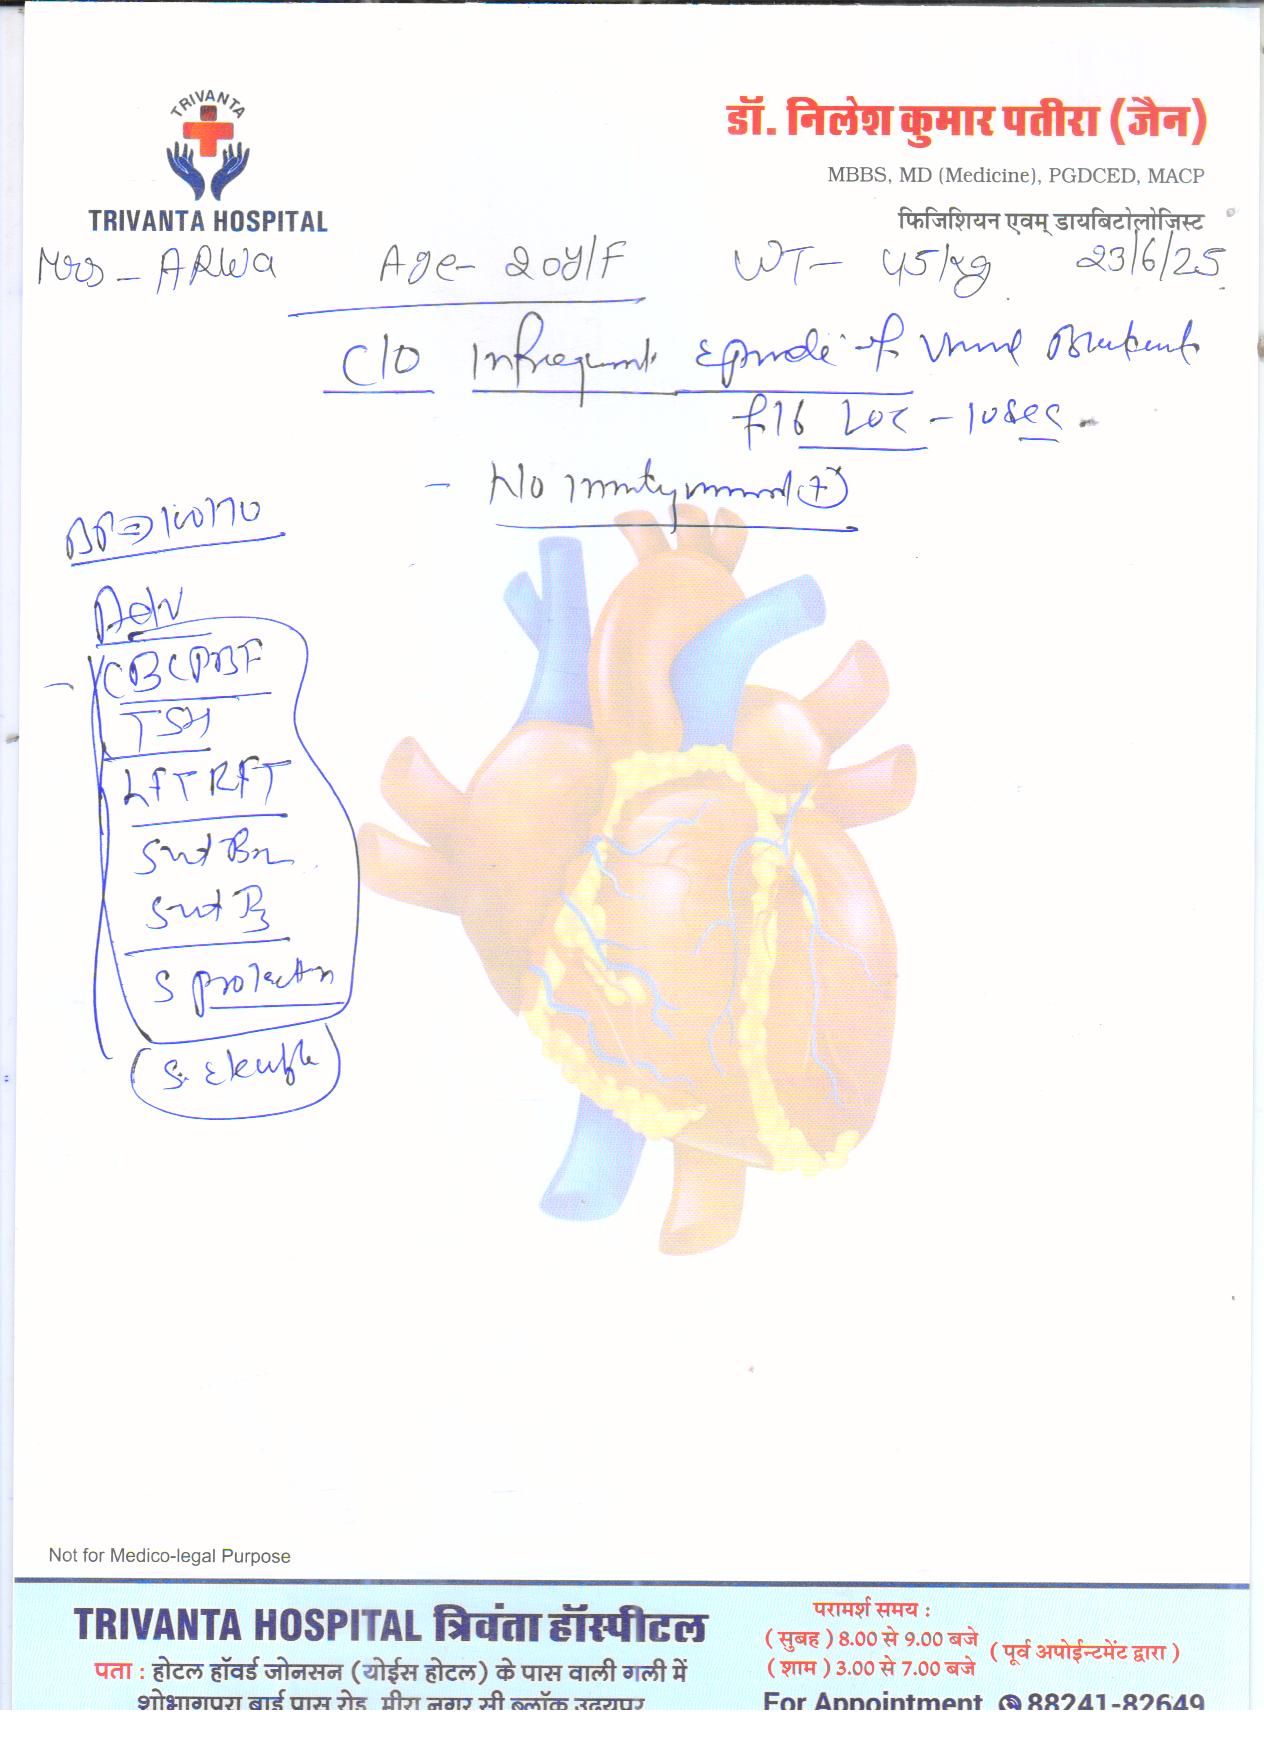 TRIVANTA
TRIVANTA HOSPITAL
डॉ. निलेश कुमार पतीरा (जैन)
MBBS, MD (Medicine), PGDCED, MACP
फिजिशियन एवम् डायबिटोलोजिस्ट
Mrs - ARWA Age - 20y/F WT - 45/kg 23/6/25
C/O Infrequent episode of
f/b LOC - 10sec
- No
Adv
- CBC PBF
TSH
LFT RFT
S vit B12
S vit D3
S prolactin
Not for Medico-legal Purpose
TRIVANTA HOSPITAL त्रिवंता हॉस्पीटल
पता : होटल हॉवर्ड जोनसन (योईस होटल) के पास वाली गली में
शोभागपुरा बाई पास रोड, मीरा नगर सी ब्लॉक उदयपुर
परामर्श समय :
( सुबह ) 8.00 से 9.00 बजे
( शाम ) 3.00 से 7.00 बजे
( पूर्व अपोईन्टमेंट द्वारा )
For Appointment 88241-82649